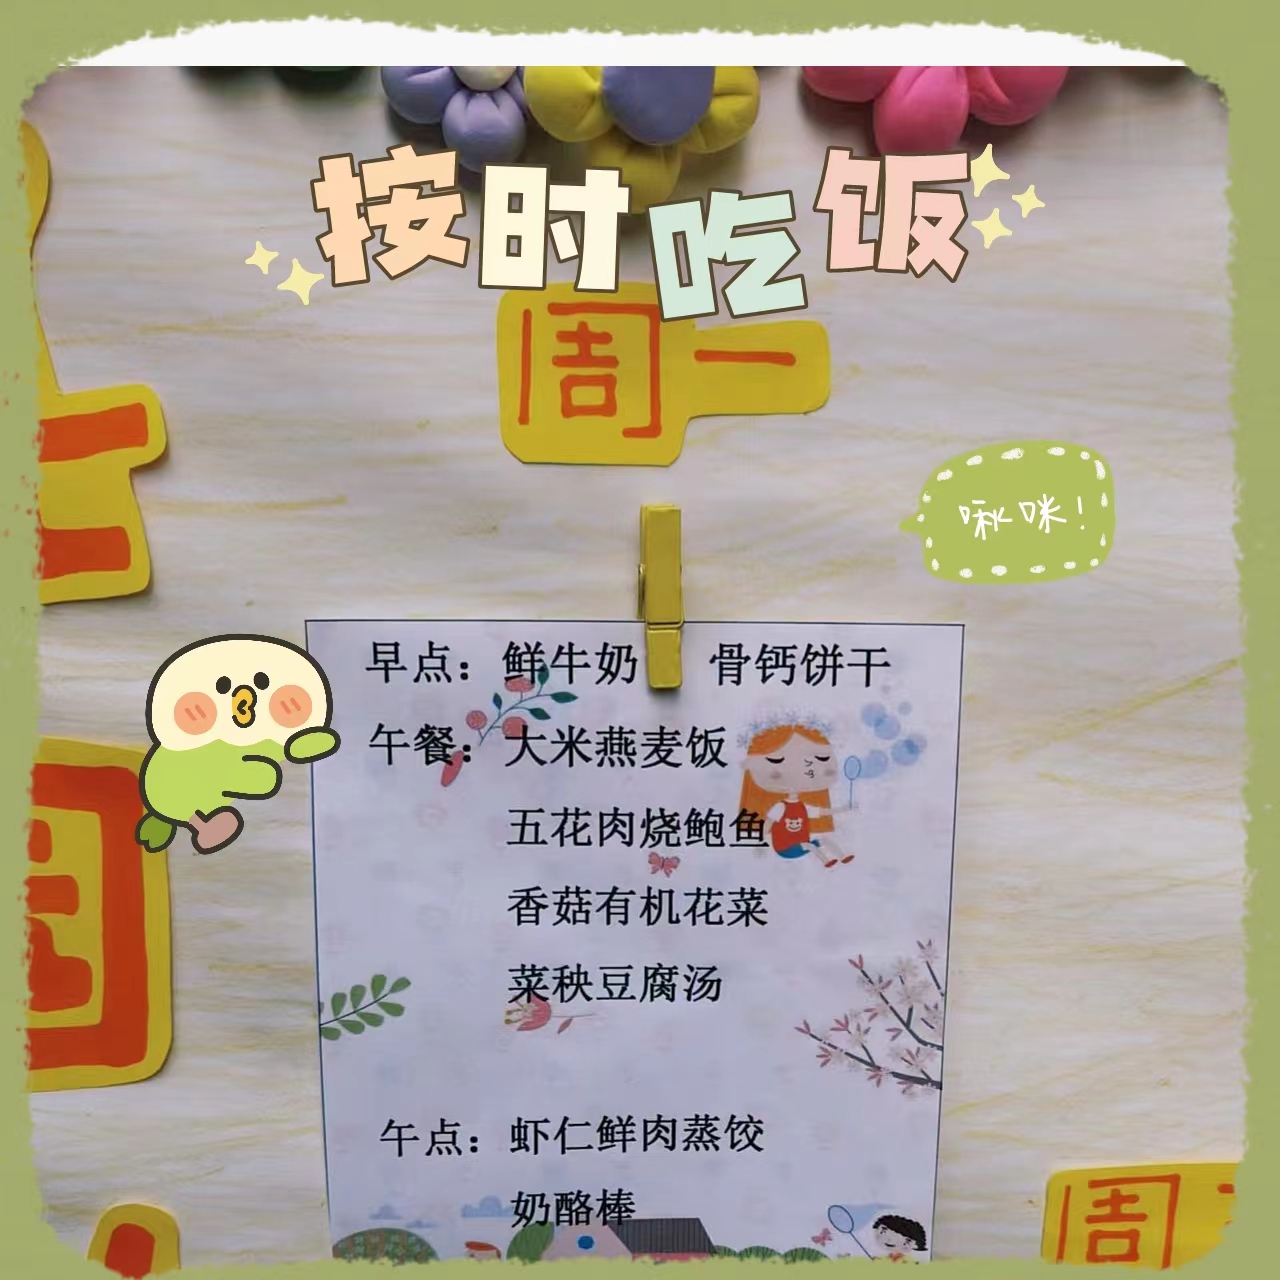 按时吃饭
周一
啾咪!
早点：鲜牛奶 骨钙饼干
午餐：大米燕麦饭
五花肉烧鲍鱼
香菇有机花菜
菜秧豆腐汤
午点：虾仁鲜肉蒸饺
奶酪棒
周